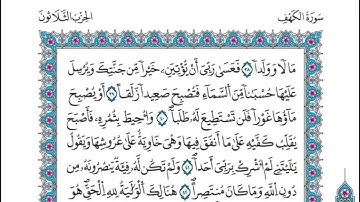 سُورَةُ الكَهْفِ
الحِزْبُ الثَّلَاثُونَ
مَالًا وَوَلَدًا ۝٣٩ فَعَسَىٰ رَبِّيٓ أَن يُؤْتِيَنِ خَيْرًا مِّن جَنَّتِكَ وَيُرْسِلَ
عَلَيْهَا حُسْبَانًا مِّنَ السَّمَآءِ فَتُصْبِحَ صَعِيدًا زَلَقًا ۝٤٠ أَوْ يُصْبِحَ
مَآؤُهَا غَوْرًا فَلَن تَسْتَطِيعَ لَهُ طَلَبًا ۝٤١ وَأُحِيطَ بِثَمَرِهِ فَأَصْبَحَ
يُقَلِّبُ كَفَّيْهِ عَلَىٰ مَآ أَنفَقَ فِيهَا وَهِيَ خَاوِيَةٌ عَلَىٰ عُرُوشِهَا وَيَقُولُ
يَٰلَيْتَنِي لَمْ أُشْرِكْ بِرَبِّيٓ أَحَدًا ۝٤٢ وَلَمْ تَكُن لَّهُ فِئَةٌ يَنصُرُونَهُ مِن
دُونِ اللَّهِ وَمَا كَانَ مُنتَصِرًا ۝٤٣ هُنَالِكَ الْوَلَٰيَةُ لِلَّهِ الْحَقِّ هُوَ